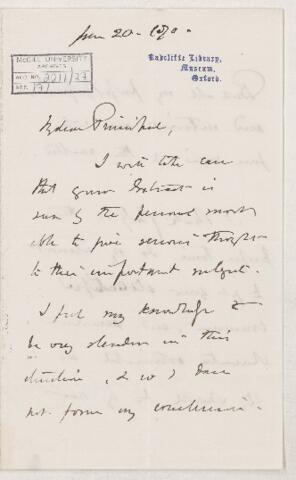 Jan 20 - 1870.
McGILL UNIVERSITY
ARCHIVES
ACC. NO. 2211/27
REF. 
Radcliffe Library,
Museum,
Oxford.
My dear Principal,
I will take care
that your Extract is
seen by the persons most
able to give serious thought
to this important subject.
I feel my knowledge to
be very slender in this
direction, & so I dare
not form my conclusions.